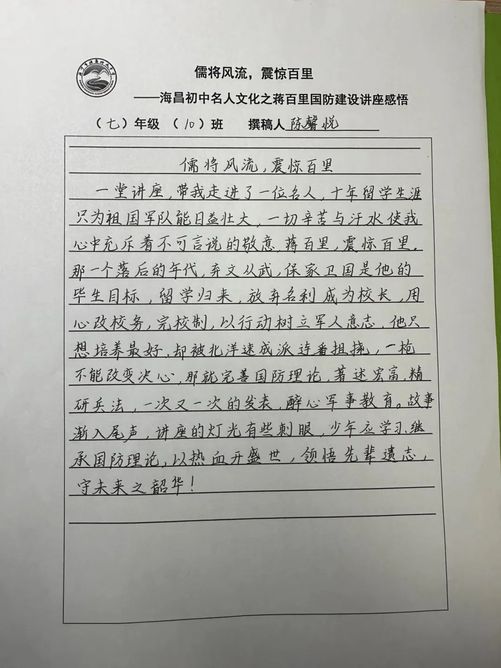 儒将风流，震惊百里
——海昌初中名人文化之蒋百里国防建设讲座感悟
（七）年级 （10）班 撰稿人 陈馨悦
儒将风流，震惊百里
一堂讲座，带我走进了一位名人，十年留学生涯
只为祖国军队能日益壮大，一切辛苦与汗水使我
心中充斥着不可言说的敬意。蒋百里，震惊百里。
那一个落后的年代，弃文从武，保家卫国是他的
毕生目标，留学归来，放弃名利成为校长，用
心改校务，完校制，以行动树立军人意志，他只
想培养最好，却被北洋速成派连番阻挠，一枪
不能改变决心，那就完善国防理论，著述宏富，精
研兵法，一次又一次的发表，醉心军事教育。故事
渐入尾声，讲座的灯光有些刺眼，少年应学习继
承国防理论，以热血开盛世，领悟先辈遗志，
守未来之韶华！